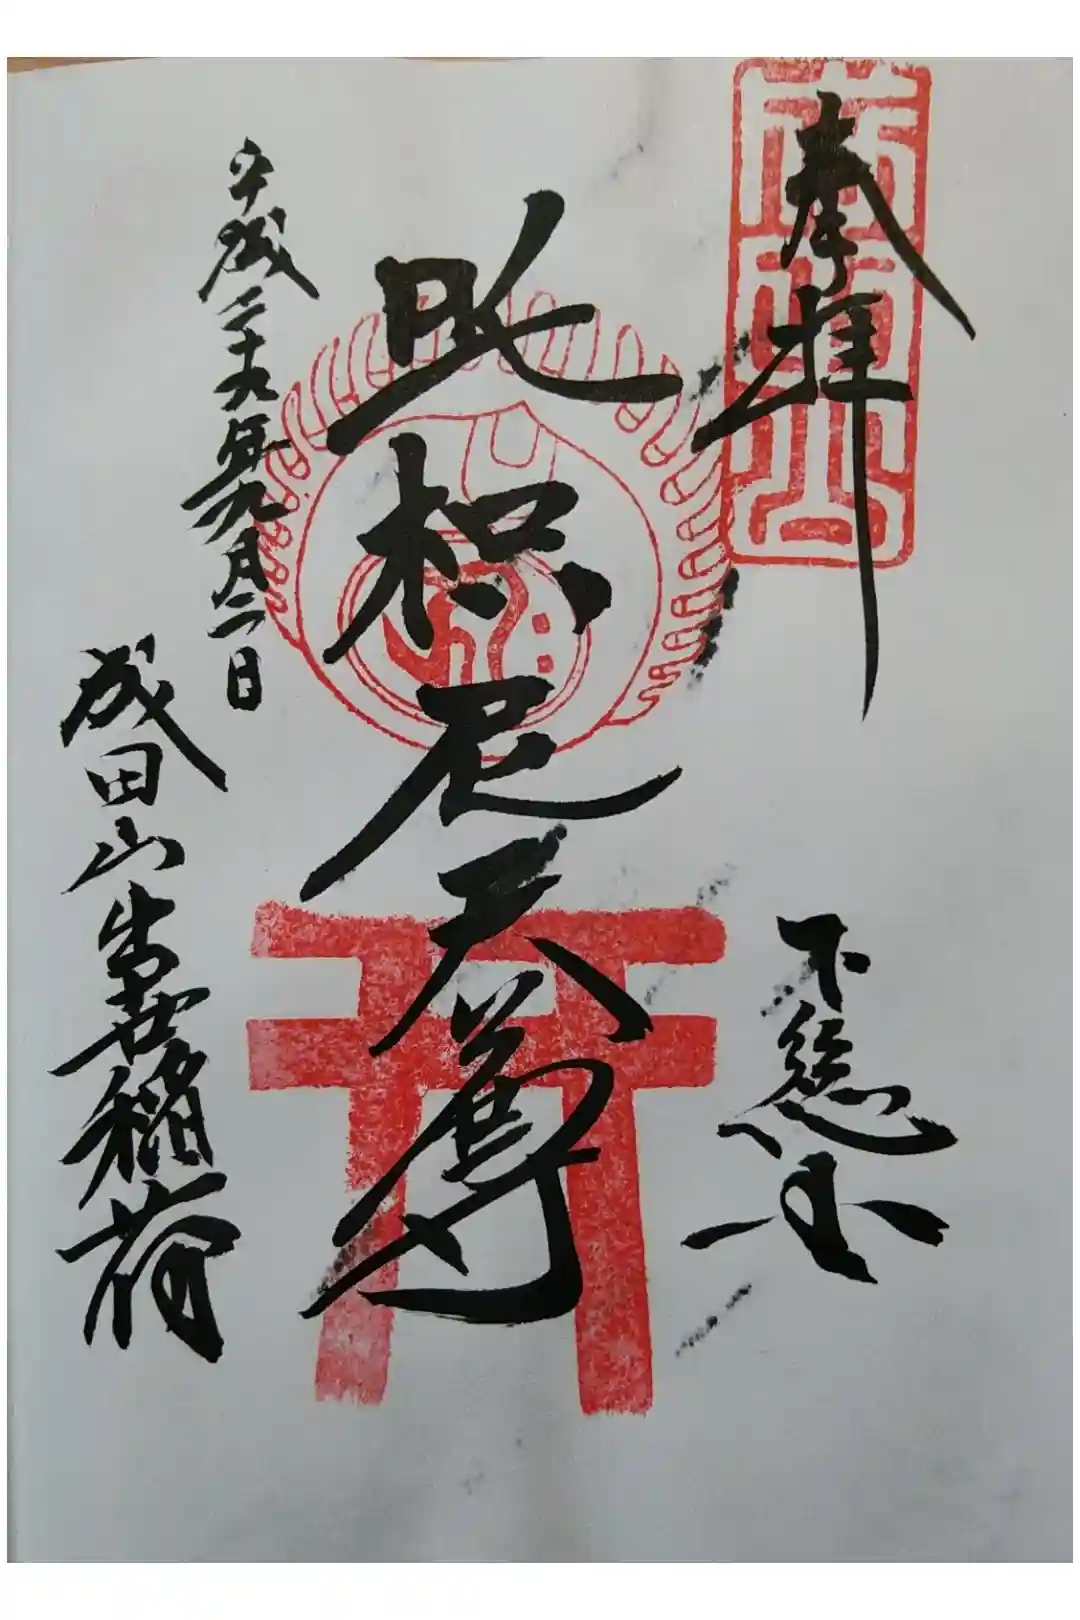 奉拝
下総
吒枳尼天尊
平成二十九年九月二日
成田山出世稲荷